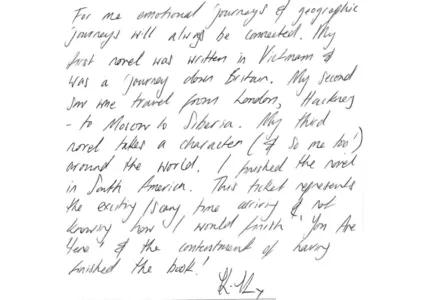 For me emotional journeys & geographic
journeys will always be connected. My
first novel was written in Vietnam &
was a journey down Britain. My second
saw me travel from London, Hackney
- to Moscow to Siberia. My third
novel takes a character (& so me too!)
around the world. I finished the novel
in South America. This ticket represents
the exciting/scary time arriving & not
knowing how I would finish 'You Are
Here' & the contentment of having
finished the book!